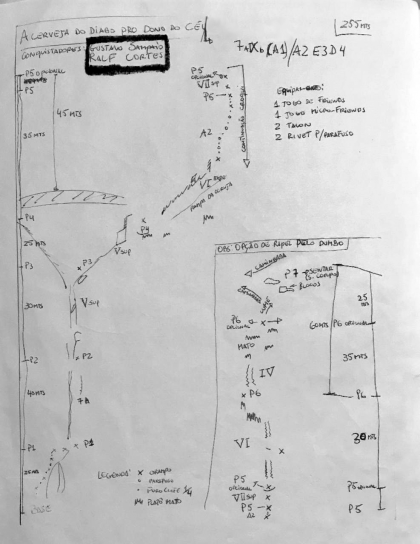 A CERVEJA DO DIABO PRO DONO DO CÉU
255 MTS
CONQUISTADORES:
GUSTAVO SAMPAIO
RALF CORTES
7a (A1)/A2 E3 D4
P5 OPCIONAL
P5
35 MTS
45 MTS
P4
25 MTS
P3
30 MTS
P2
40 MTS
P1
25 MTS
P5
VII SUP
P5
A2
CONTINUAÇÃO CROQUI
VI
EQUIPAMENTO:
1 JOGO DE FRIENDS
1 JOGO MICRO-FRIENDS
2 TALON
2 RIVET P/PARAFUSO
P4
V SUP
P3
V SUP
P2
7A
P1
LEGENDAS:
x GRAMPO
PARAFUSO
FURO CLIFF
MATO
OBS: OPÇÃO DE RAPEL PELO DUMBO
CAMINHADA
P7
BLOCOS
P6
MATO
IV
P6
VI
P5
VII SUP
P5
A2
25 MTS
60 MTS
P6
35 MTS
P6
30 MTS
P5
P5